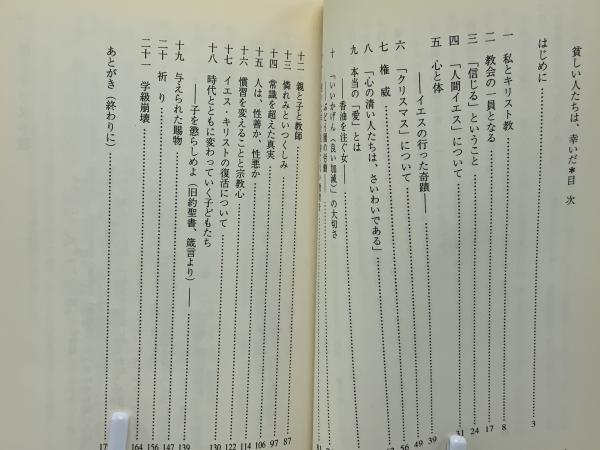 貧しい人たちは、幸いだ＊目 次
はじめに……3
一 私とキリスト教……8
二 教会の一員となる……17
三 「信じる」ということ……24
四 「人間イエス」について……31
五 心と体……39
――イエスの行った奇蹟――
六 「クリスマス」について……49
七 権 威……56
八 「心の清い人たちは、さいわいである」
九 本当の「愛」とは
――香油を注ぐ女――
十 「いいかげん（良い加減）」の大切さ
十二 親と子と教師……87
十三 憐れみといつくしみ……97
十四 常識を超えた真実……106
十五 人は、性善か、性悪か……114
十六 慣習を変えることと宗教心……122
十七 イエス・キリストの復活について……130
十八 時代とともに変わっていく子どもたち
――子を懲らしめよ（旧約聖書、箴言より）――……139
十九 与えられた賜物……147
二十 祈 り……156
二十一 学級崩壊……164
あとがき（終わりに）……17